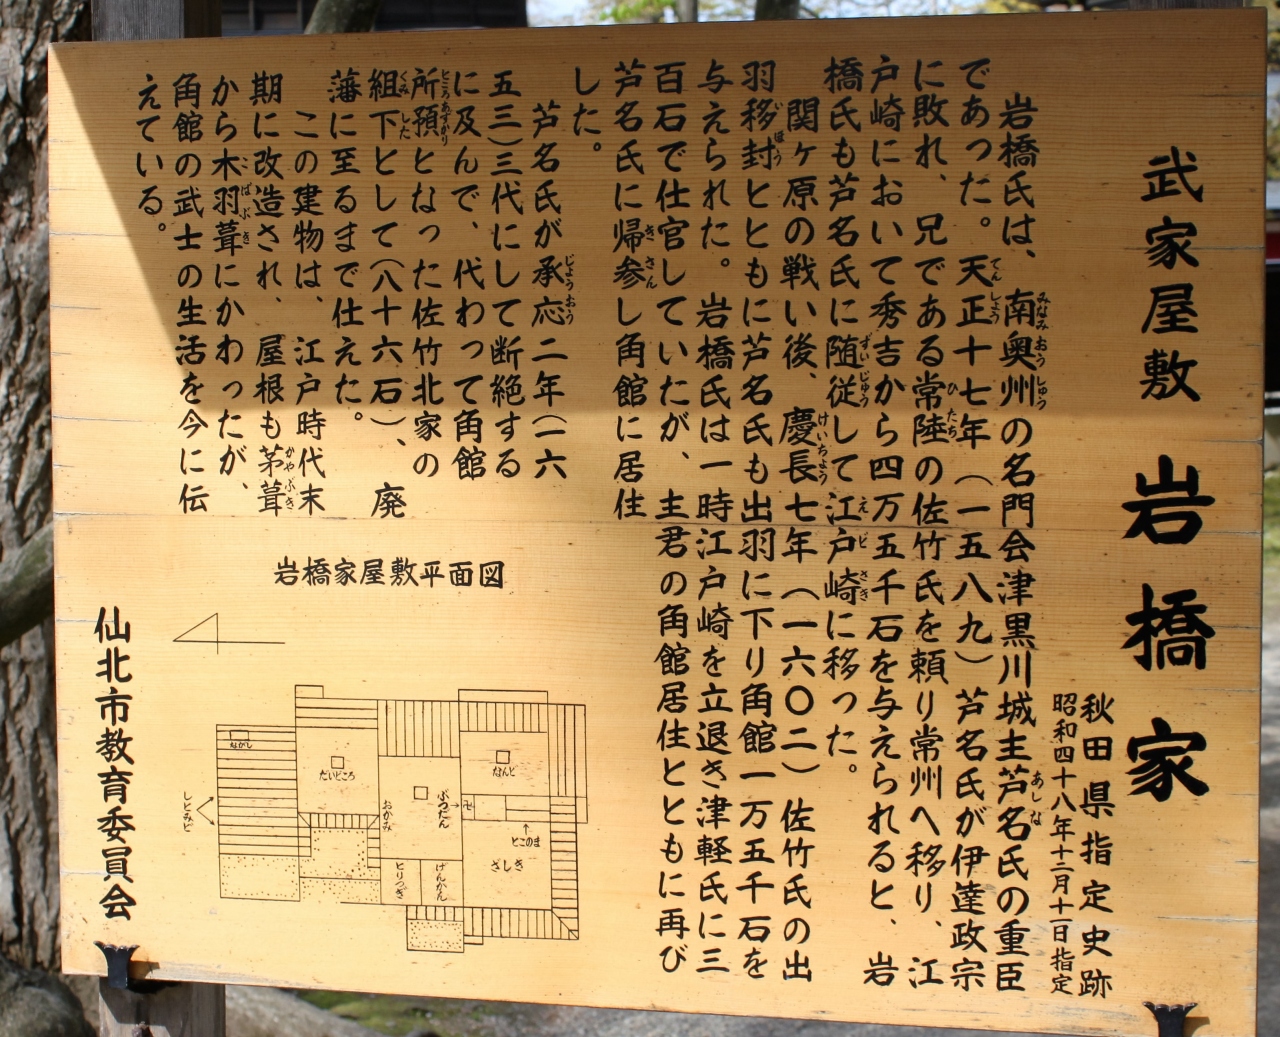 武家屋敷 岩橋家
秋田県指定史跡
昭和四十八年十二月十一日指定
岩橋氏は、南奥州の名門会津黒川城主芦名氏の重臣
であった。天正十七年（一五八九）芦名氏が伊達政宗
に敗れ、兄である常陸の佐竹氏を頼り常州へ移り、江
戸崎において秀吉から四万五千石を与えられると、岩
橋氏も芦名氏に随従して江戸崎に移った。
関ヶ原の戦い後、慶長七年（一六〇二）佐竹氏の出
羽移封とともに芦名氏も出羽に下り角館一万五千石を
与えられた。岩橋氏は一時江戸崎を立退き津軽氏に三
百石で仕官していたが、主君の角館居住とともに再び
芦名氏に帰参し角館に居住
した。
芦名氏が承応二年（一六
五三）三代にして断絶する
に及んで、代わって角館
所預となった佐竹北家の
組下として（八十六石）、廃
藩に至るまで仕えた。
この建物は、江戸時代末
期に改造され、屋根も茅葺
から木羽葺にかわったが、
角館の武士の生活を今に伝
えている。
岩橋家屋敷平面図
ながし
だいどころ
なんど
ぶつだん
おかみ
とこのま
ざしき
げんかん
とりつぎ
しとみど
仙北市教育委員会